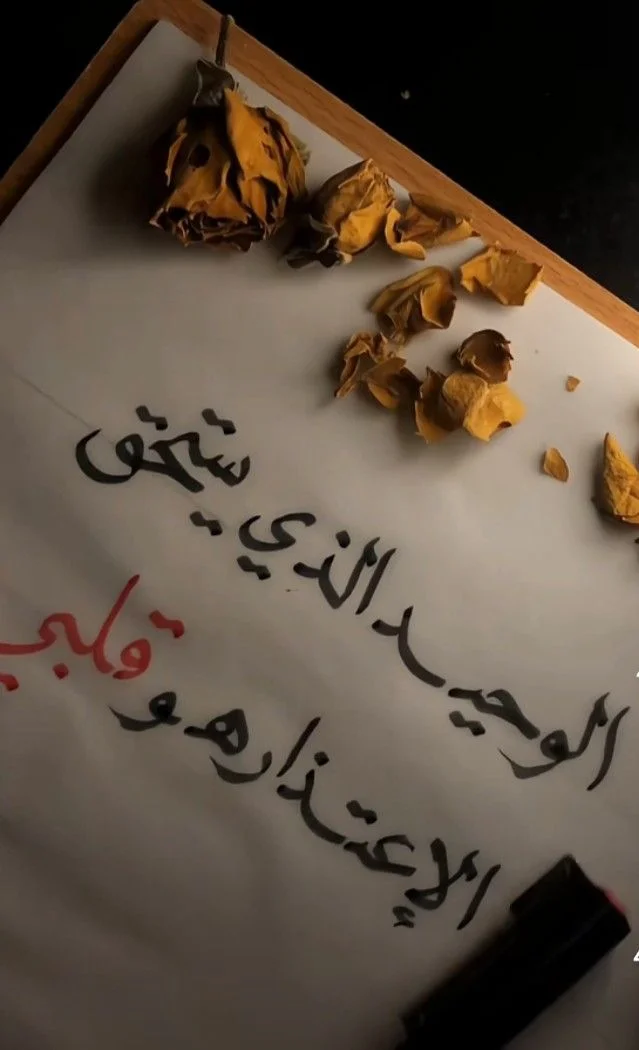 الوحيد الذي يستحق
الإعتذار هو قلبي